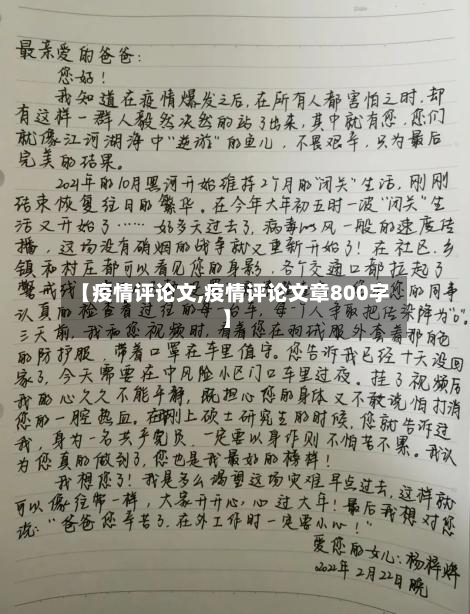 最亲爱的爸爸：
您好！
我知道在疫情爆发之后，在所有人都害怕之时，却
有这样一群人毅然决然的站了出来，其中就有您，您们
就像江河湖海中“逆游”的鱼儿，不畏艰辛，只为最后
完美的结果。
2021年的10月黑河开始维持2个月的“闭关”生活，刚刚
结束恢复往日的繁华。在今年大年初五时一波“闭关”生
活又开始了……好多天过去了，病毒以风一般的速度传
播，这场没有硝烟的战争就又重新开始了！在社区、乡
镇和村庄都可以看见您的身影，各个交通口都拉起了
【疫情评论文,疫情评论文章800字
】
警戒线
您的同事
认真的检查着过往的每一
每一个人争取把传染降为“0”。
三天前，我和您视频时，看着您在羽绒服外套着那白色
的防护服，带着口罩在车里值守。您告诉我已经十天没回
家了，今天需要在中风险小区门口车里过夜。挂了视频后
我的心久久不能平静，既担心您的身体又不敢说怕打消
您的一腔热血。在刚上硕士研究生的时候，您就告诉过
我，身为一名共产党员，一定要以身作则不怕苦不累。我认
为您真的做到了，您也是我最好的榜样！
我想您了！我是多么渴望这场灾难早点过去，这样就
可以像往常一样，大家开开心心过大年！最后我想对您
说：“爸爸您辛苦了，在外工作时一定要小心！”
爱您的女儿：杨梓烨
2022年2月22日晚